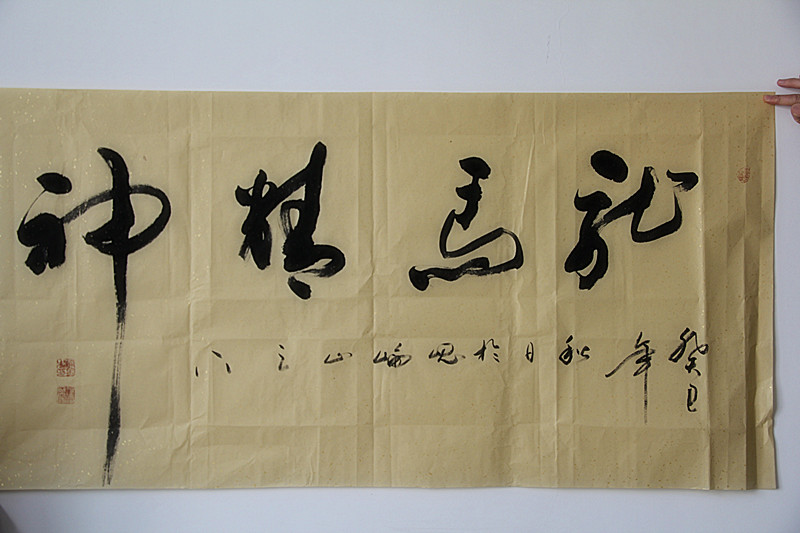 龍馬精神
癸巳年秋日於昆嵛山之下